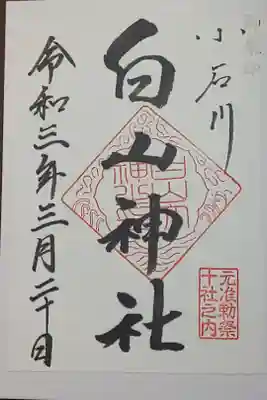 小石川
白山神社
元准勅祭
十社之内
令和三年三月二十日